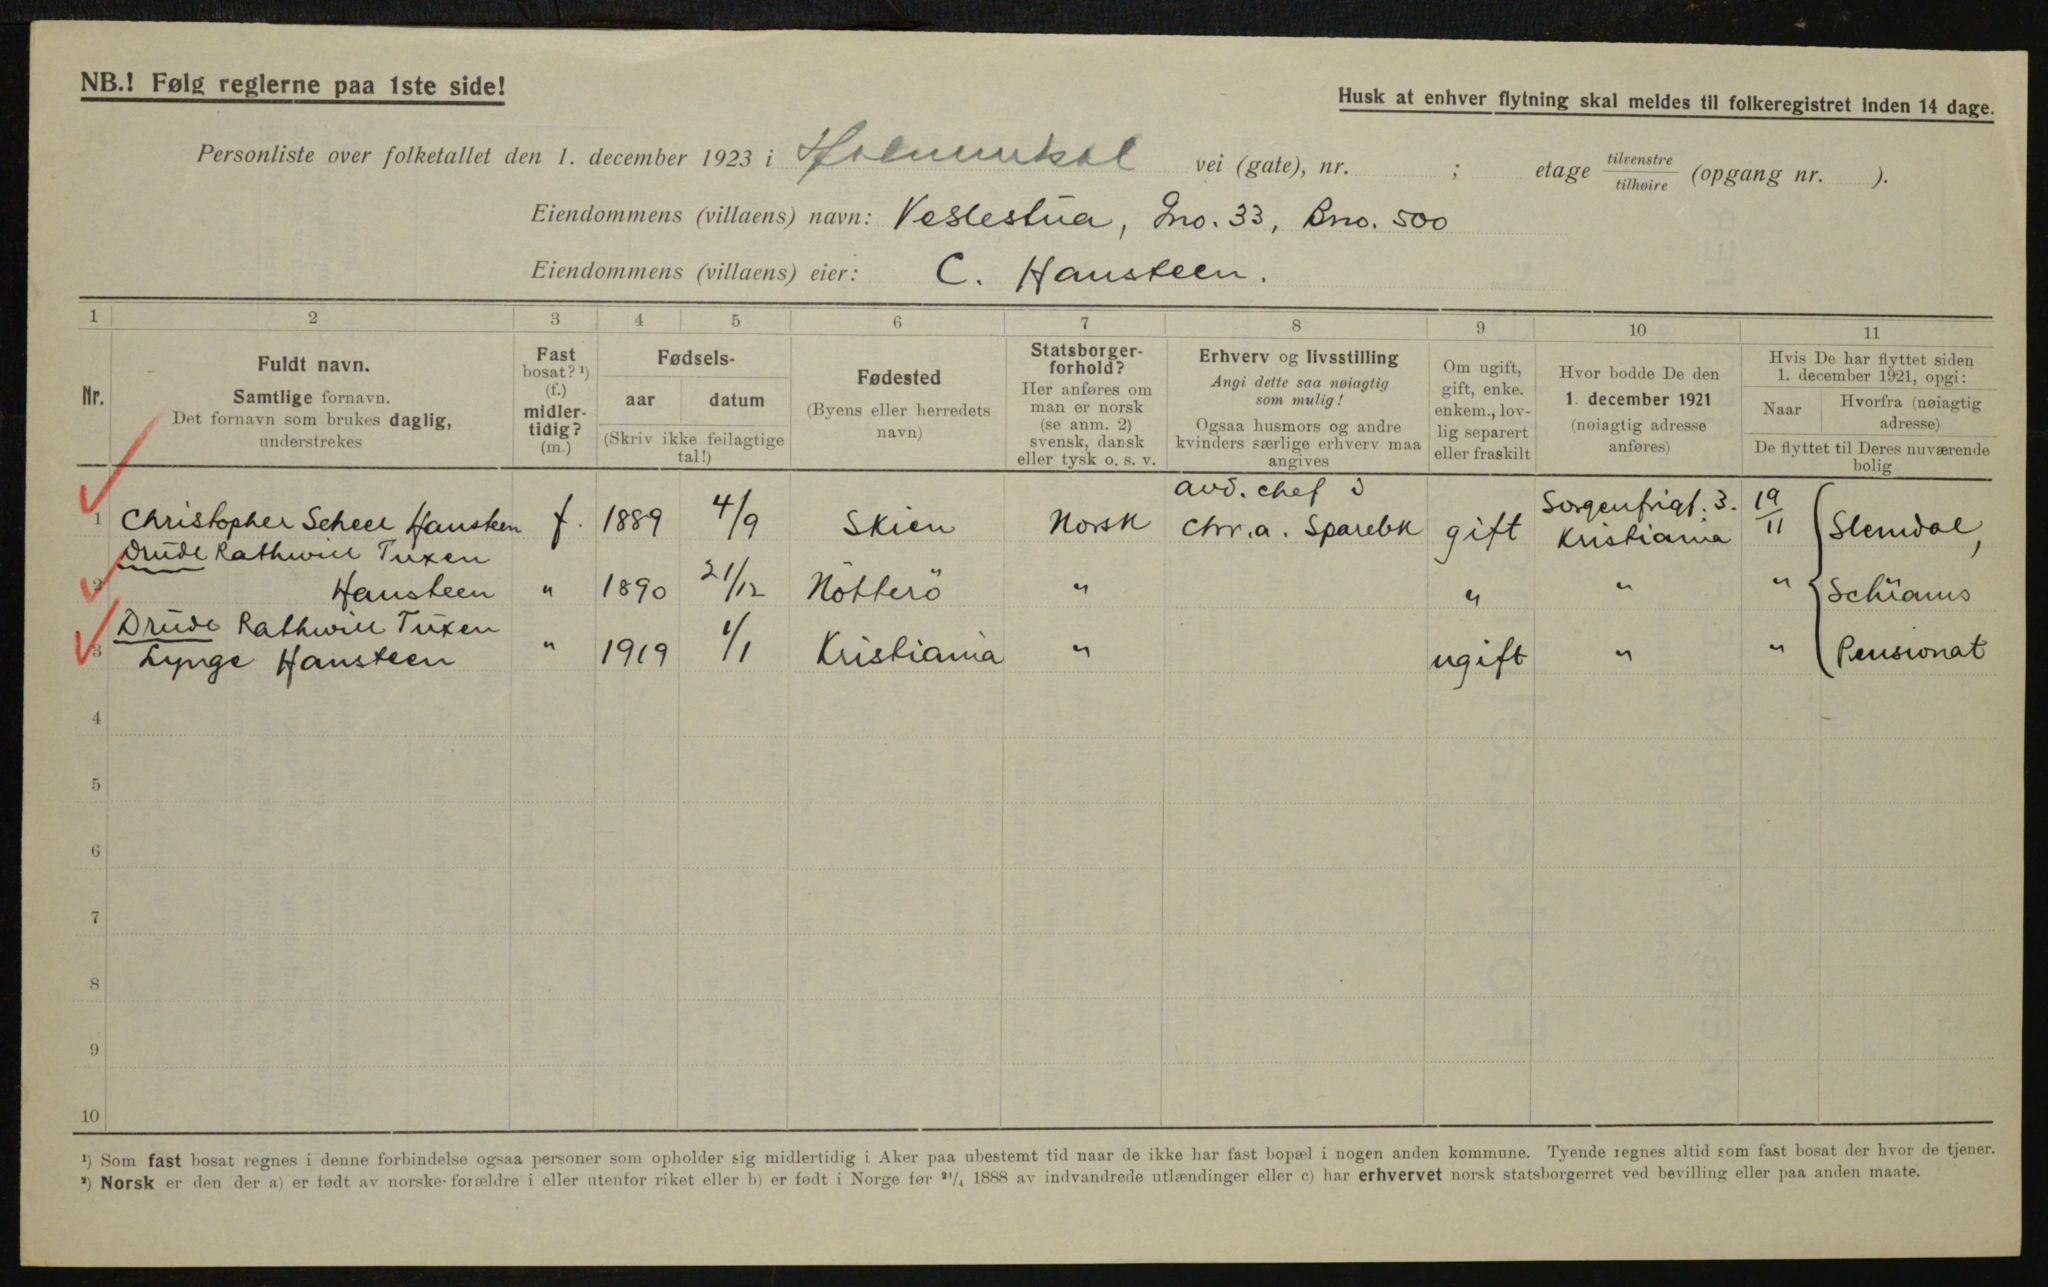 NB.! Følg reglerne paa 1ste side!
Husk at enhver flytning skal meldes til folkeregistret inden 14 dage.
Personliste over folketallet den 1. december 1923 i vei (gate), nr. ; etage tilvenstre/tilhøire (opgang nr. ).
Eiendommens (villaens) navn: Veslestua, Gno. 33, Bno. 500
Eiendommens (villaens) eier: C. Hansteen.
1 2 3 4 5 6 7 8 9 10 11
Nr.
Fuldt navn.
Samtlige fornavn.
Det fornavn som brukes daglig,
understrekes
Fast
bosat? ¹)
(f.)
midler-
tidig?
(m.)
Fødsels-
aar datum
(Skriv ikke feilagtige
tal!)
Fødested
(Byens eller herredets
navn)
Statsborger-
forhold?
Her anføres om
man er norsk
(se anm. 2)
svensk, dansk
eller tysk o. s. v.
Erhverv og livsstilling
Angi dette saa nøiagtig
som mulig!
Ogsaa husmors og andre
kvinders særlige erhverv maa
angives
Om ugift,
gift, enke.
enkem., lov-
lig separert
eller fraskilt
Hvor bodde De den
1. december 1921
(nøiagtig adresse
anføres)
Hvis De har flyttet siden
1. december 1921, opgi:
Naar
Hvorfra (nøiagtig
adresse)
De flyttet til Deres nuværende
bolig
avd. chef i Sorgenfrigt. 3.
1 Christopher Scheel Hansteen f. 1889 4/9 Skien Norsk Chr.a. Sparebk gift Kristiania 19/11 Slemdal,
Drude Rathwill Tuxen
2 Hansteen " 1890 21/12 Nötterö " " " " Schiøanns
Drude Rathwill Tuxen
3 Lynge Hansteen " 1919 1/1 Kristiania " ugift " " Pensionat
4
5
6
7
8
9
10
¹) Som fast bosat regnes i denne forbindelse ogsaa personer som opholder sig midlertidig i Aker paa ubestemt tid naar de ikke har fast bopæl i nogen anden kommune. Tyende regnes altid som fast bosat der hvor de tjener.
²) Norsk er den der a) er født av norske forældre i eller utenfor riket eller b) er født i Norge før 21/4 1888 av indvandrede utlændinger eller c) har erhvervet norsk statsborgerret ved bevilling eller paa anden maate.